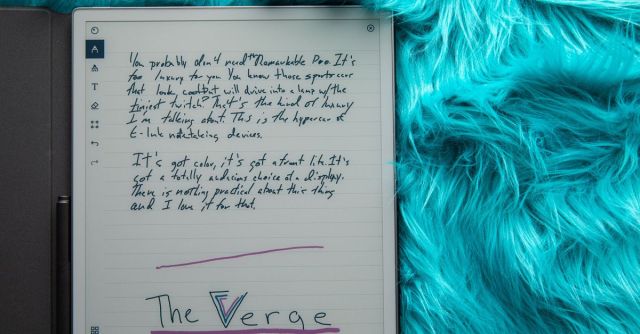 You probably don't need the Remarkable Pro. It's
too luxury for you. You know those sportscars
that look cool but will drive into a lamp w/the
tiniest twitch? That's the kind of luxury
I'm talking about. This is the hypercar of
E-Ink notetaking devices.
It's got color, it's got a front lit. It's
got a totally audacious choice of a display.
There is nothing practical about this thing
and I love it for that.
The Verge